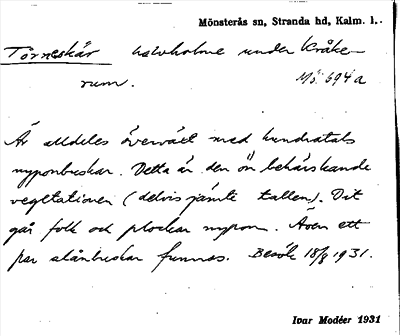 Mönsterås sn, Stranda hd, Kalm. l.
Törneskär under Kråke-
rum. Mö. 694a
Är alldeles övervärt med hundratals
nyponbuskar. Detta är den ön behärskande
vegetationen (delvis jämte tallen). Dit
går folk och plockar nypon. Även ett
par slånbuskar funnos. Besök 18/8 1931.
Ivar Modéer 1931